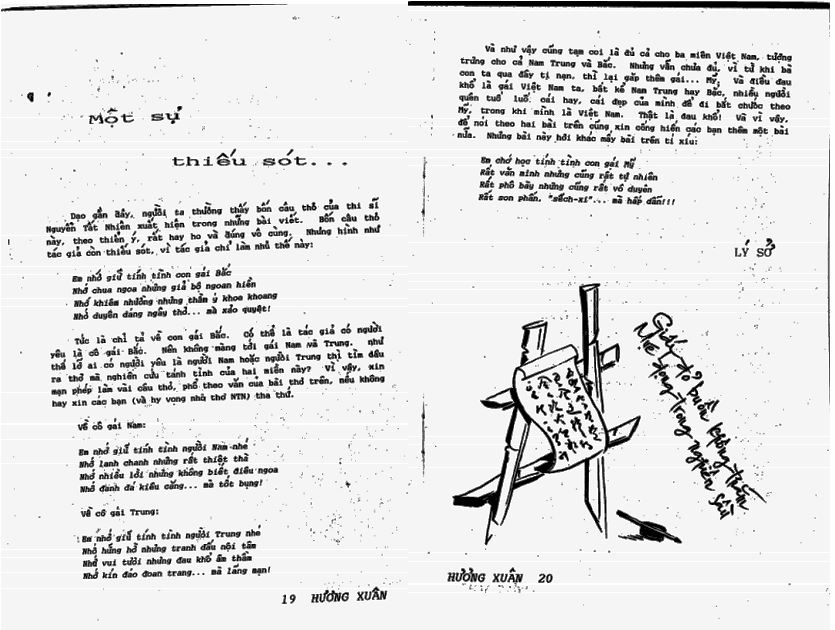 Một sự
thiếu sót...
Dạo gần đây, người ta thường thấy bốn câu thơ của thi sĩ
Nguyễn Tất Nhiên xuất hiện trong những bài viết. Bốn câu thơ
này, theo thiển ý, rất hay ho và đúng vô cùng. Nhưng hình như
tác giả còn thiếu sót, vì tác giả chỉ làm như thế này:
Em nhớ giữ tính tình con gái Bắc
Nhớ chua ngoa nhưng giả bộ ngoan hiền
Nhớ khiêm nhường nhưng thâm ý khoe khoang
Nhớ duyên dáng ngây thơ... mà xảo quyệt!
Tức là chỉ tả về con gái Bắc. Có thể là tác giả có người
yêu là cô gái Bắc. Nên không màng tới gái Nam và Trung. như
thế lỡ ai có người yêu là người Nam hoặc người Trung thì tìm đâu
ra thơ mà nghiên cứu tánh tình của hai miền này? Vì vậy, xin
mạn phép làm vài câu thơ, phổ theo văn của bài thơ trên, nếu không
hay xin các bạn (và hy vọng nhà thơ NTN) tha thứ.
Về cô gái Nam:
Em nhớ giữ tính tình người Nam nhé
Nhớ lanh chanh nhưng rất thiệt thà
Nhớ nhiều lời nhưng không biết điêu ngoa
Nhớ đanh đá kiêu căng... mà tốt bụng!
Về cô gái Trung:
Em nhớ giữ tính tình người Trung nhé
Nhớ hững hờ nhưng tranh đấu nội tâm
Nhớ vui tươi nhưng đau khổ âm thầm
Nhớ kín đáo đoan trang... mà lãng mạn!
19 HƯƠNG XUÂN
Và như vậy cũng tạm coi là đủ cả cho ba miền Việt Nam, tượng
trưng cho cả Nam Trung và Bắc. Nhưng vẫn chưa đủ, vì từ khi bà
con ta qua đây tị nạn, thì lại gặp thêm gái... Mỹ. Và điều đau
khổ là gái Việt Nam ta, bất kể Nam Trung hay Bắc, nhiều người
quên tuốt luốt cái hay, cái đẹp của mình để đi bắt chước theo
Mỹ, trong khi mình là Việt Nam. Thật là đau khổ! Và vì vậy,
để nói theo hai bài trên cũng xin cống hiến các bạn thêm một bài
nữa. Nhưng bài này hơi khác mấy bài trên tí xíu:
Em chớ học tính tình con gái Mỹ
Rất văn minh nhưng cũng rất tự nhiên
Rất phô bày nhưng cũng rất vô duyên
Rất son phấn, "sếch-xi"... mà hấp dẫn!!!
LÝ SỞ
Giấy đỏ buồn không thắm
Mực đọng trong nghiên sầu
HƯƠNG XUÂN 20